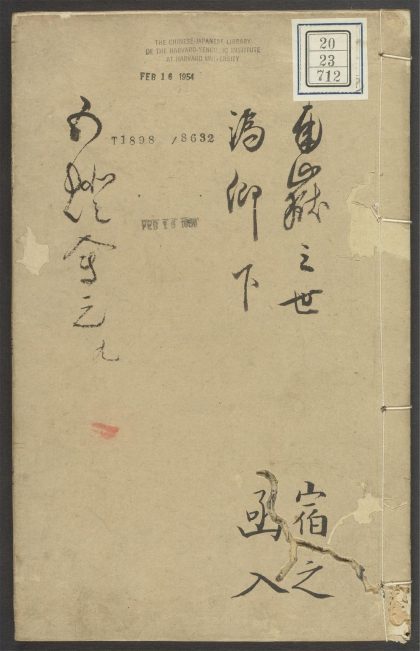 THE CHINESE-JAPANESE LIBRARY
OF THE HARVARD-YENCHING INSTITUTE
AT HARVARD UNIVERSITY
FEB 16 1954
20
23
712
南嶽三世
溈仰下
T1898 /8632
五燈會元 九
FEB 16 1954
宿之
函入